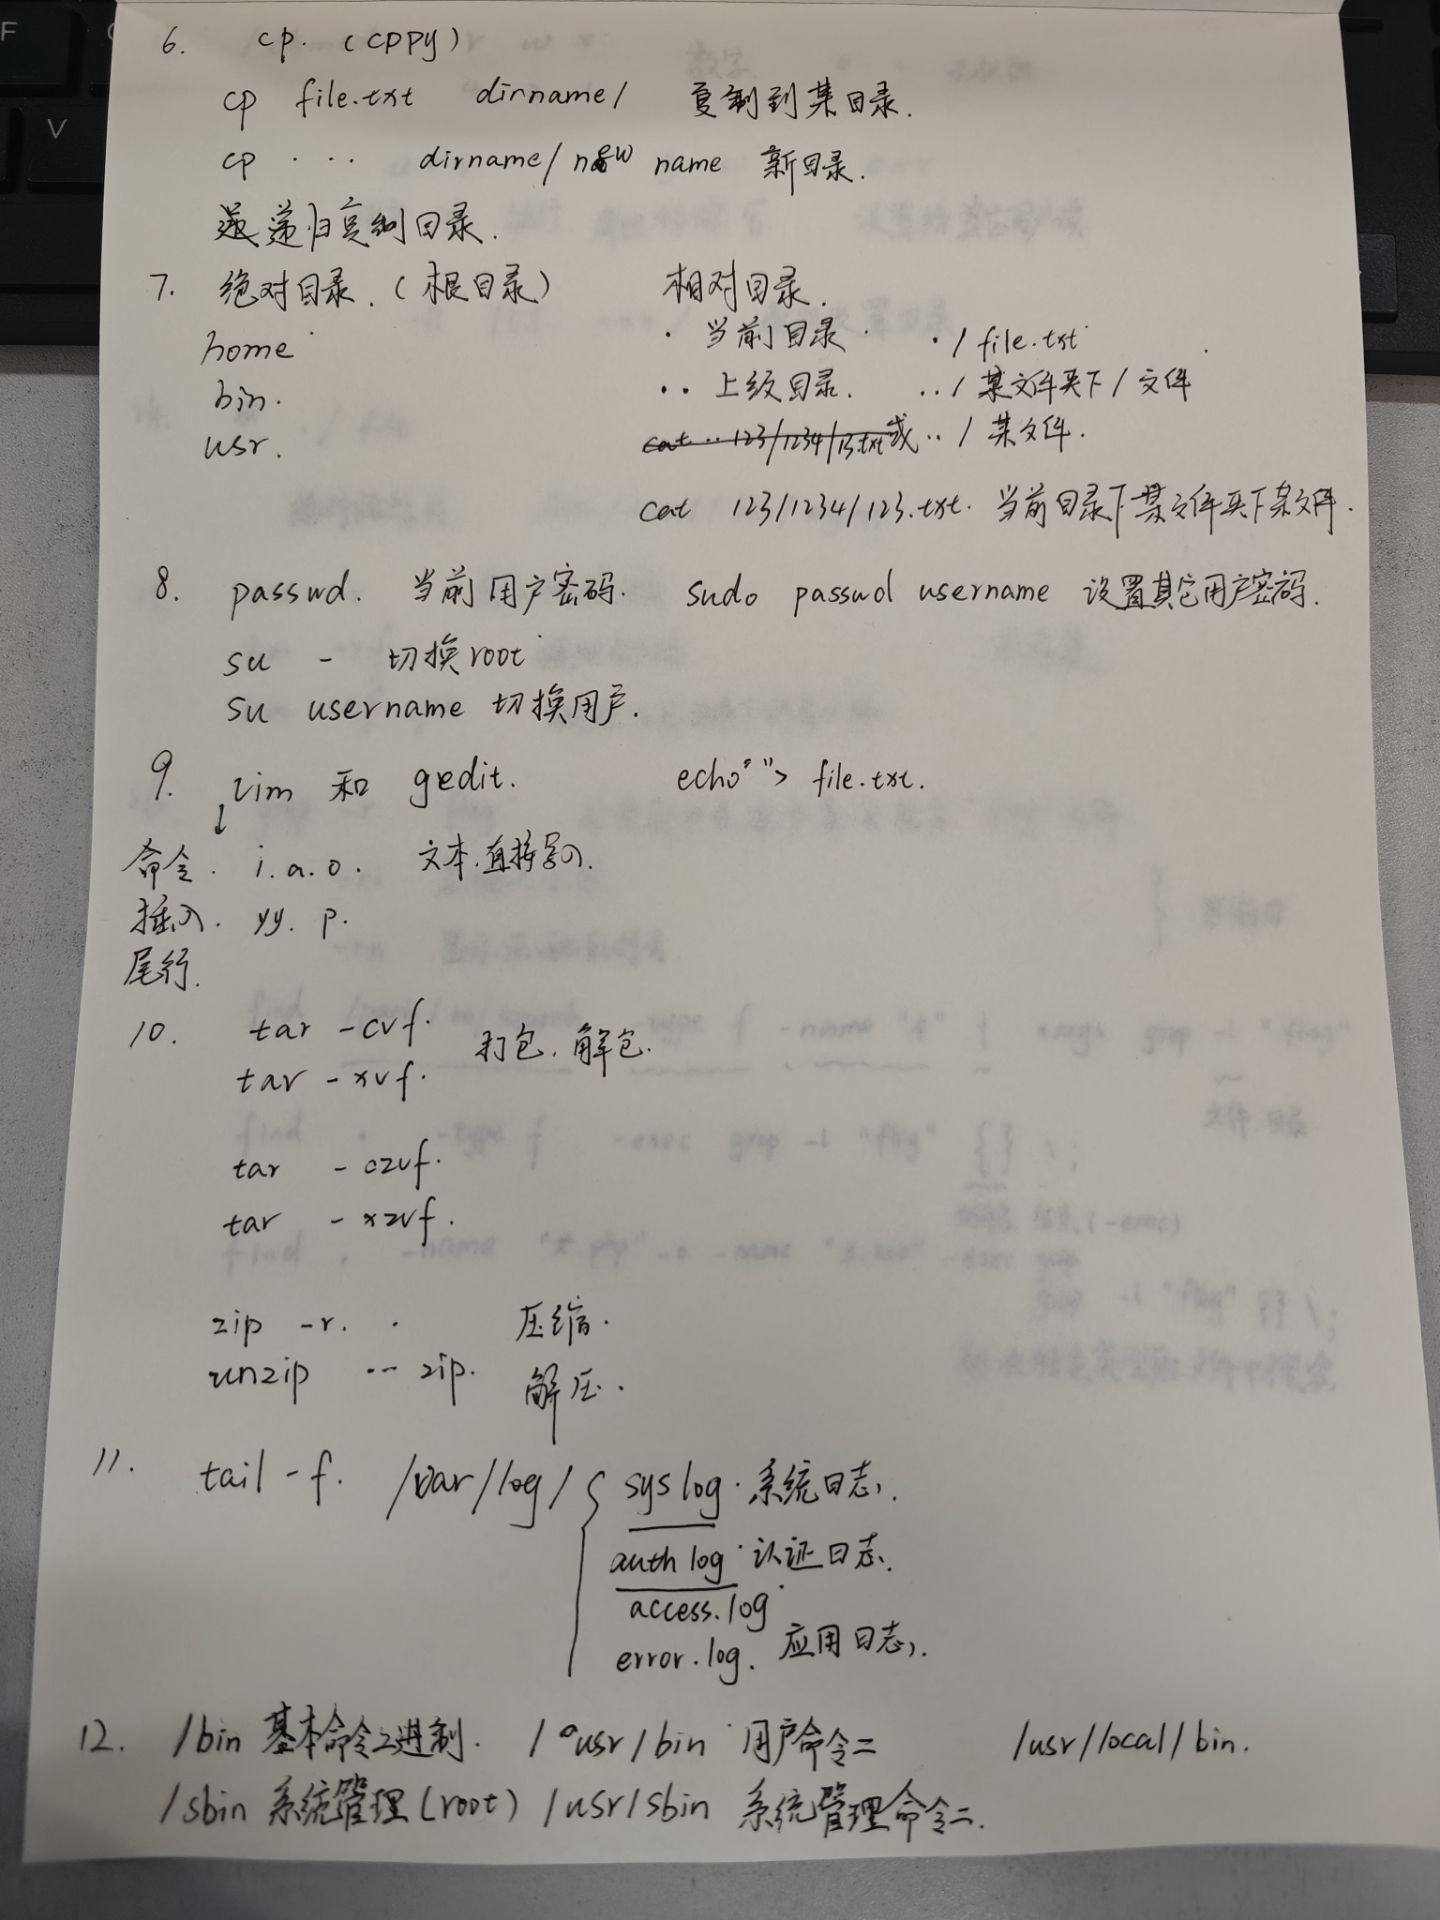 6. cp. (cppy)
cp file.txt dirname/ 复制到某目录.
cp ... dirname/new name 新目录.
递归复制目录.
7. 绝对目录.(根目录) 相对目录.
home . 当前目录 ./file.txt
bin. .. 上级目录. ../某文件夹下/文件
usr. cat ..123/1234/13.txt或 ../某文件.
cat 123/1234/123.txt. 当前目录下某文件夹下某文件.
8. passwd. 当前用户密码. sudo passwd username 设置其它用户密码.
su - 切换root
su username 切换用户.
9. vim 和 gedit. echo" "> file.txt.
命令. i.a.o. 文本.直接写入.
插入. yy. p.
尾行.
10. tar -cvf. 打包.解包.
tar -xvf.
tar -czvf.
tar -xzvf.
zip -r. . 压缩.
unzip ... zip. 解压.
11. tail -f. /var/log/{ syslog.系统日志.
auth log.认证日志.
access.log
error.log. 应用日志.
12. /bin 基本命令二进制. /usr/bin 用户命令二 /usr/local/bin.
/sbin 系统管理(root) /usr/sbin 系统管理命令二.
F
V